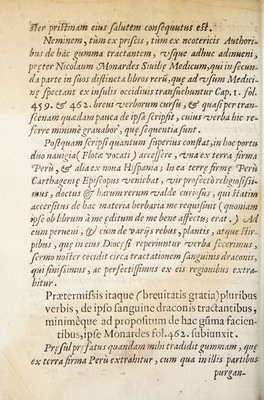 ster pristinam eius salutem consequutus est.
Neminem, tùm ex priscis, tùm ex neotericis Authori-
bus de hac gumma tractantem, vsque adhuc adinueni,
pręter Nicolaum Monardes Siuilię Medicum, qui in secun-
da parte in suos distincta libros rerũ, quę ad vsum Medici-
nę spectant ex insulis occiduis transuehuntur Cap. 1. fol.
459. & 462. breui verborum cursu, & quasi per tran-
scenam quædam pauca de ipsa scripsit, cuius verba hic re-
ferre minimè grauabor, que sequentia sunt.
Postquam scripsi quantum superius constat, in hoc portu
duo nauigia (Flotæ vocati) accessere, vna ex terra firma
Perù, & alia ex noua Hispania; In ea terrę firmę Perù
Carthagenę Episcopus veniebat, vir profectò religiosissi-
mus, doctus & harum rerum valde curiosus, qui statim
accersitus de hac materia herbaria me requisiuit (quoniam
iose ob librum à me ęditum de me bene affectus erat.) Ad
eum perueni, & cùm de varijs rebus, plantis, atque stir-
pibus, quę in eius Diocesi reperiuntur verba fecerimus,
sermo noster cecidit circa tractationem sanguinis draconis,
qui finissimus, ac perfectissimus ex eis regionibus extra-
hitur.
Prætermissis itaque (breuitatis gratia) pluribus
verbis, de ipso sanguine draconis tractantibus,
minimèque ad propositum de hac gũma facien-
tibus, ipse Monardes fol. 462. subiunxit.
Pręsul pręfatus quandam mihi tradidit gummam, quę
ex terra firma Perù extrahitur, cum qua in illis partibus
purgan-